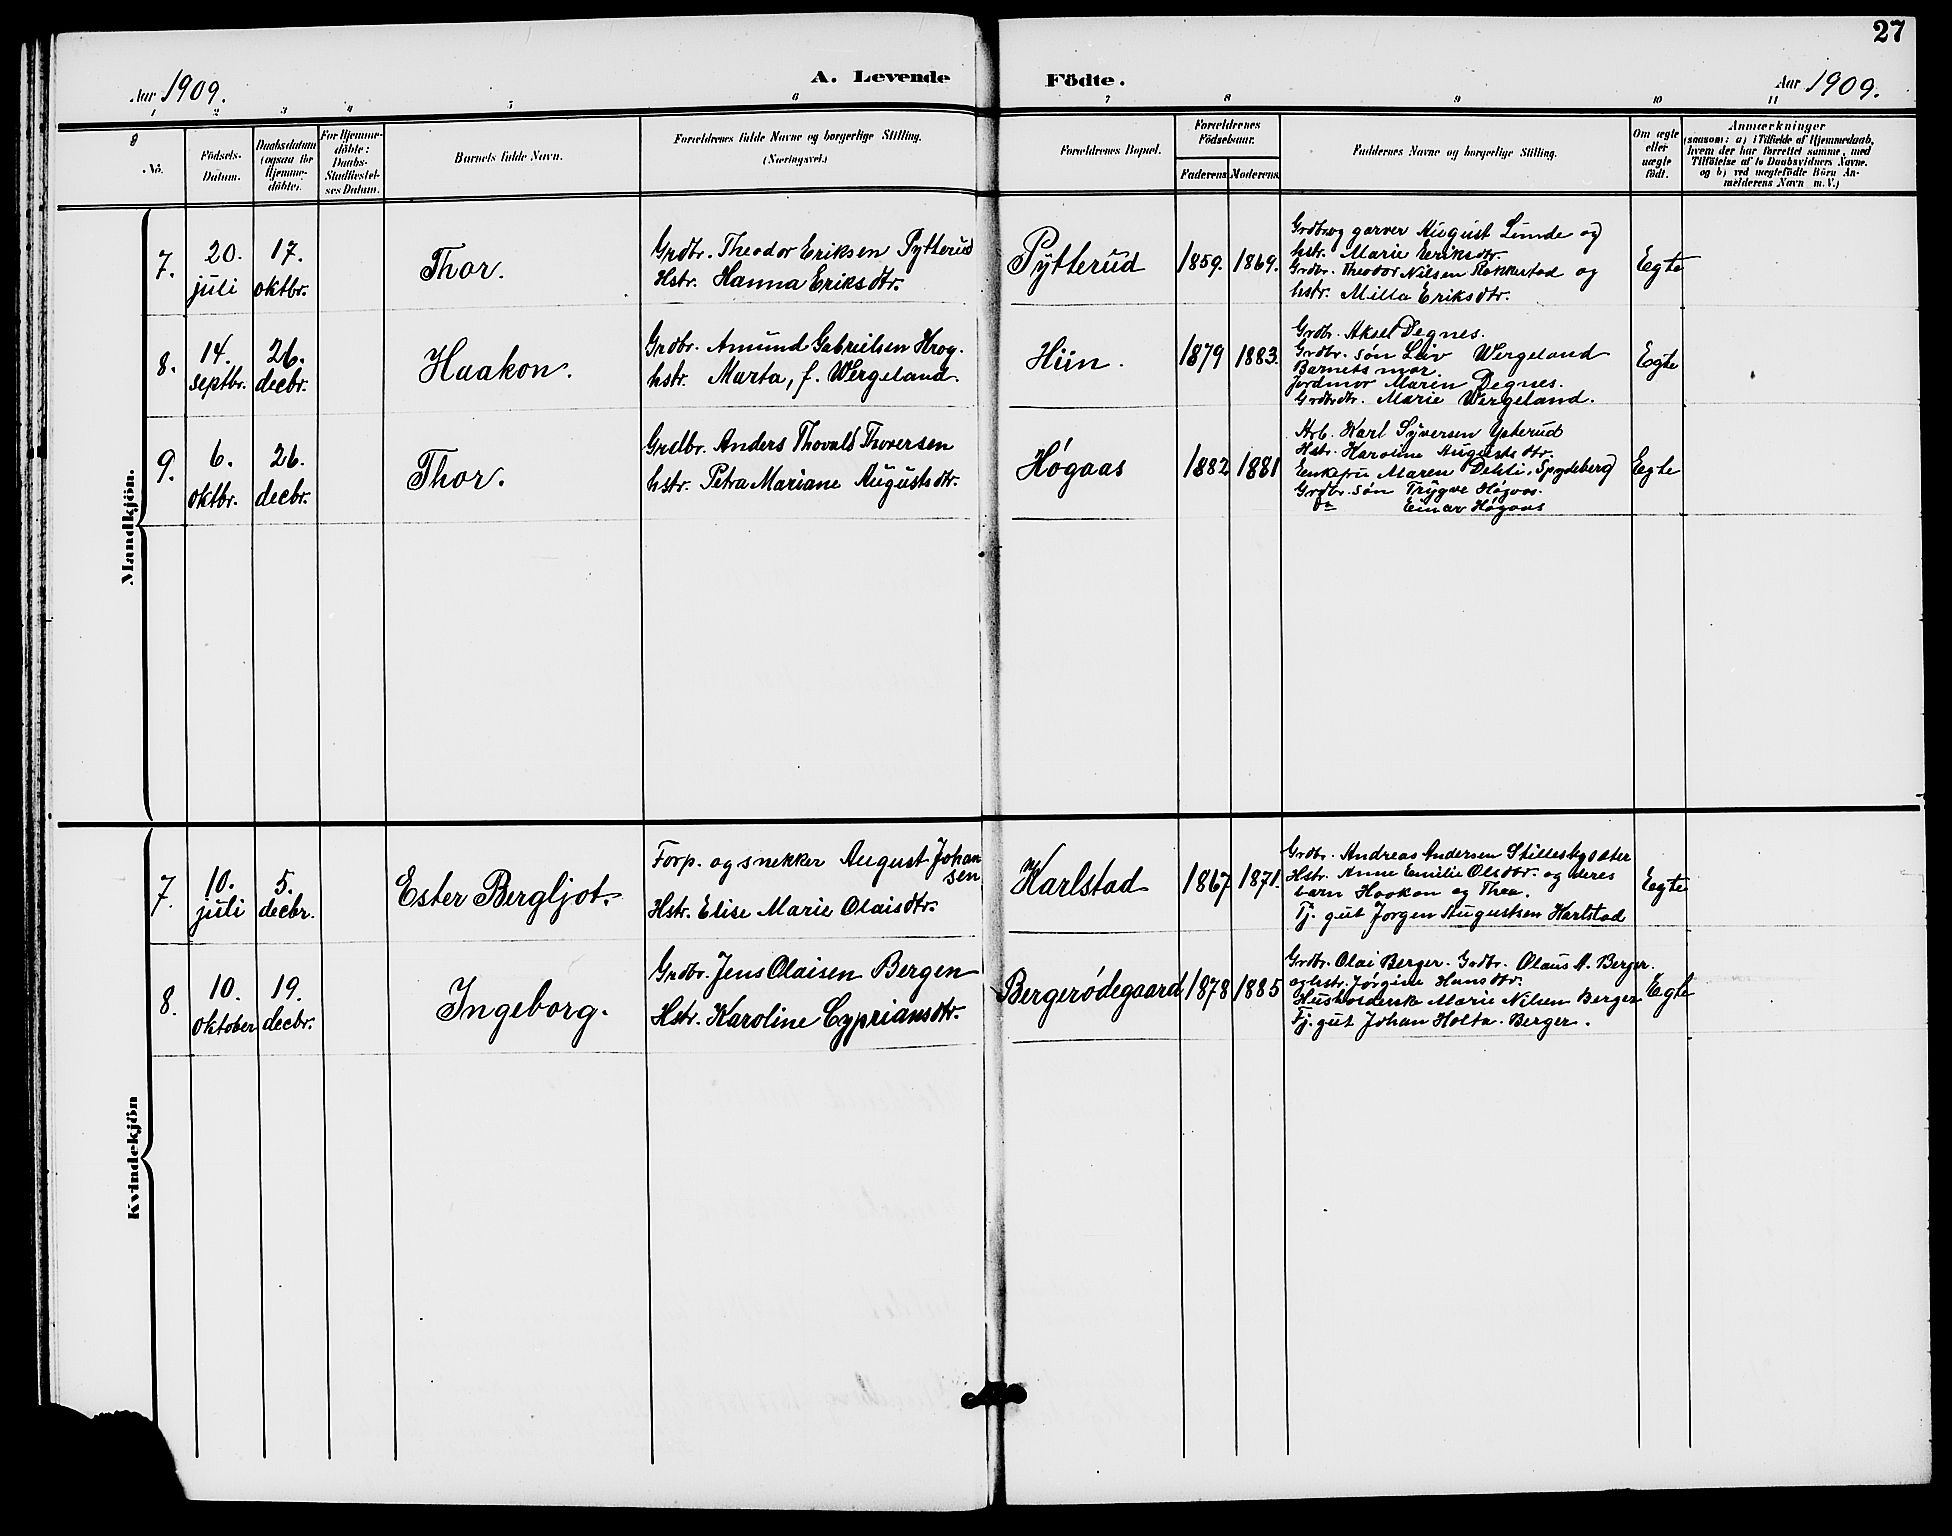 27
Aar 1909.
A. Levende Födte.
Aar 1909.
1 2 3 4 5 6 7 8 9 10 11
No.
Födsels-Datum.
Daabsdatum (ogsaa for Hjemme-döbte).
For Hjemme-döbte: Daabs-Stadfæstel-ses Datum.
Barnets fulde Navn.
Forældrenes fulde Navne og borgerlige Stilling.
(Næringsvei.)
Forældrenes Bopæl.
Forældrenes Födselsaar.
Faderens Moderens
Faddernes Navne og borgerlige Stilling.
Om ægte eller uægte födt.
Anmærkninger
(saasom: a) i Tilfælde af Hjemmedaab,
hvem der har forrettet samme, med
Tilföielse af to Daabsvidners Navne.
og b) ved uægtefödte Börn An-
melderens Navn m. V.)
Mandkjön.
7. 20. juli 17. oktbr. Thor.
Grdbr. Theodor Eriksen Pytterud
Hstr. Hanna Eriksdtr.
Pytterud 1859. 1869.
Grdbr. og garver August Lunde og
hstr. Marie Eriksdtr.
Grdbr. Theodor Nilsen Rakkestad og
hstr. Milla Eriksdtr.
Egte
8. 14. septbr. 26. decbr. Haakon.
Grdbr. Amund Gabrielsen Krog.
hstr. Marta, f. Wergeland.
Hiin. 1879 1883.
Grdbr. Aksel Degnes.
Grdbr. søn Leiv Wergeland
Barnets mor.
Jordmor Maren Degnes.
Grdbrdtr. Marie Wergeland.
Egte
9. 6. oktbr. 26. decbr. Thor.
Grdbr. Anders Thovald Thoversen
hstr. Petra Mariane Augustsdtr.
Høgaas 1882 1881
Arb. Karl Syversen Ysterud
Hstr. Karoline Augustsdtr.
Enkefru Maren Dehli, Spydeberg
Grdbr. søn Trygve Høgaas.
do Einar Høgaas
Egte
Kvindekjön
7. 10. juli 5. decbr. Ester Bergljot.
Forp. og snekker August Johan
sen
Hstr. Elise Marie Olaisdtr.
Karlstad 1867 1871.
Grdbr. Andreas Andersen Stillesby øster
Hstr. Anne Emilie Olsdtr. og deres
barn Haakon og Thea.
Tj. gut Jørgen Augustsen Karlstad
Egte
8. 10. oktober 19. decbr. Ingeborg.
Grdbr. Jens Olaisen Bergen
Hstr. Karoline Cypriansdtr.
Bergerødegaard 1878 1885
Grdbr. Olai Berger. Grdbr. Olaus A. Berger.
og hstr. Jørgine Hansdtr.
Husholderske Marie Nilsen Berger
Tj. gut Johan Holta. Berger.
Egte